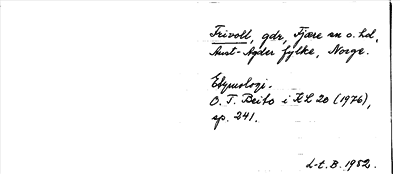 Trivoll, gdr, Fjære sn o. hd,
Aust-Agder fylke, Norge.
Etymologi.
O. T. Beito i KL 20 (1976),
sp. 241.
L-t. B. 1982.